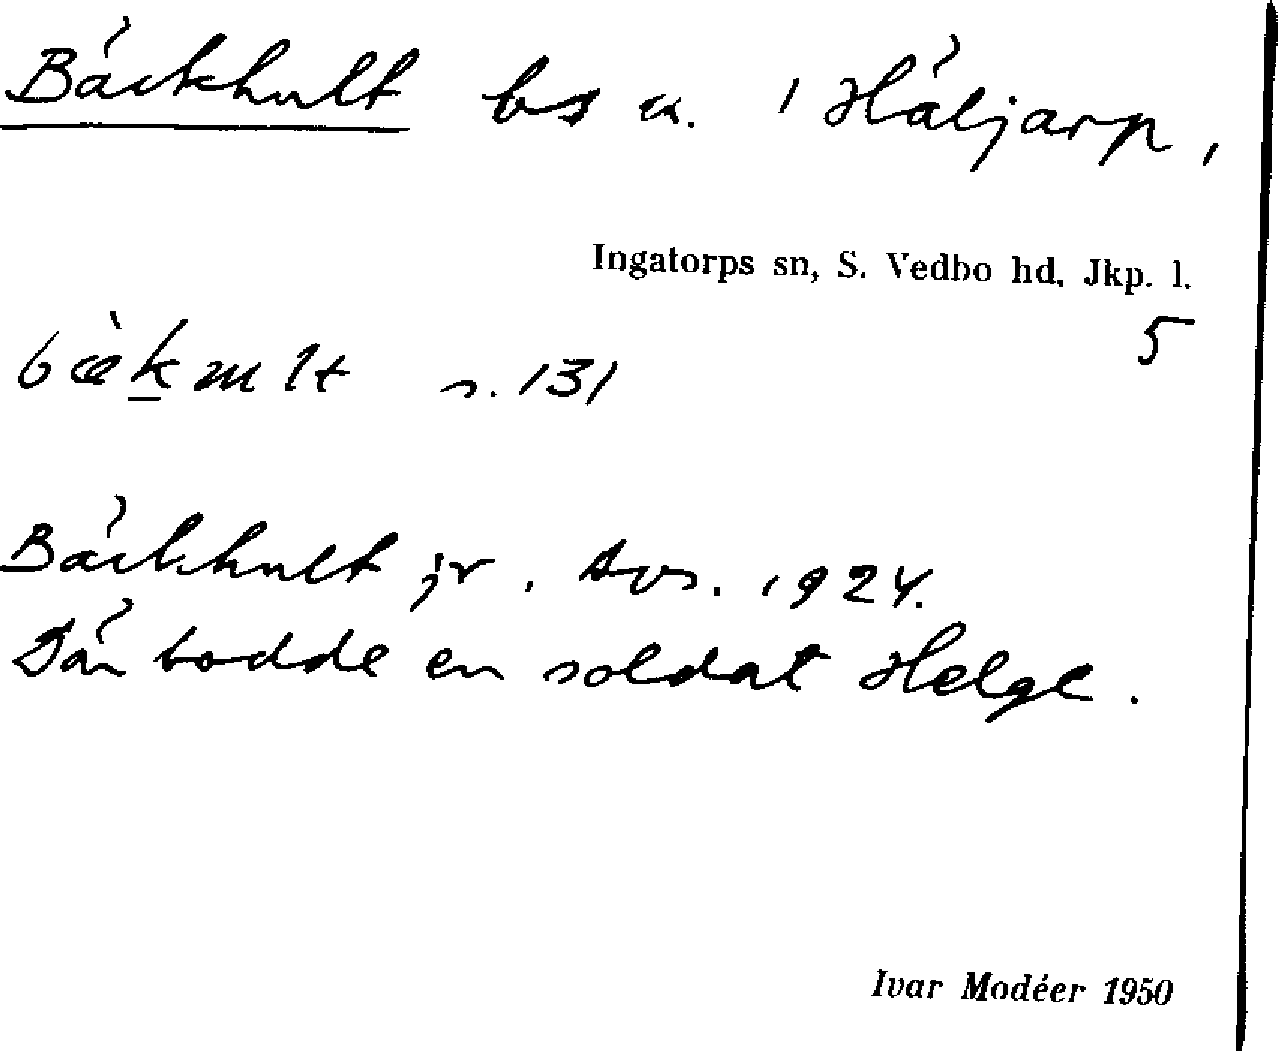 Bäckhult bs u. i Häljarp,
Ingatorps sn, S. Vedbo hd, Jkp. l.
5
s. 131
Bäckhult jr, Avs. 1924.
Där bodde en soldat Helge.
Ivar Modéer 1950